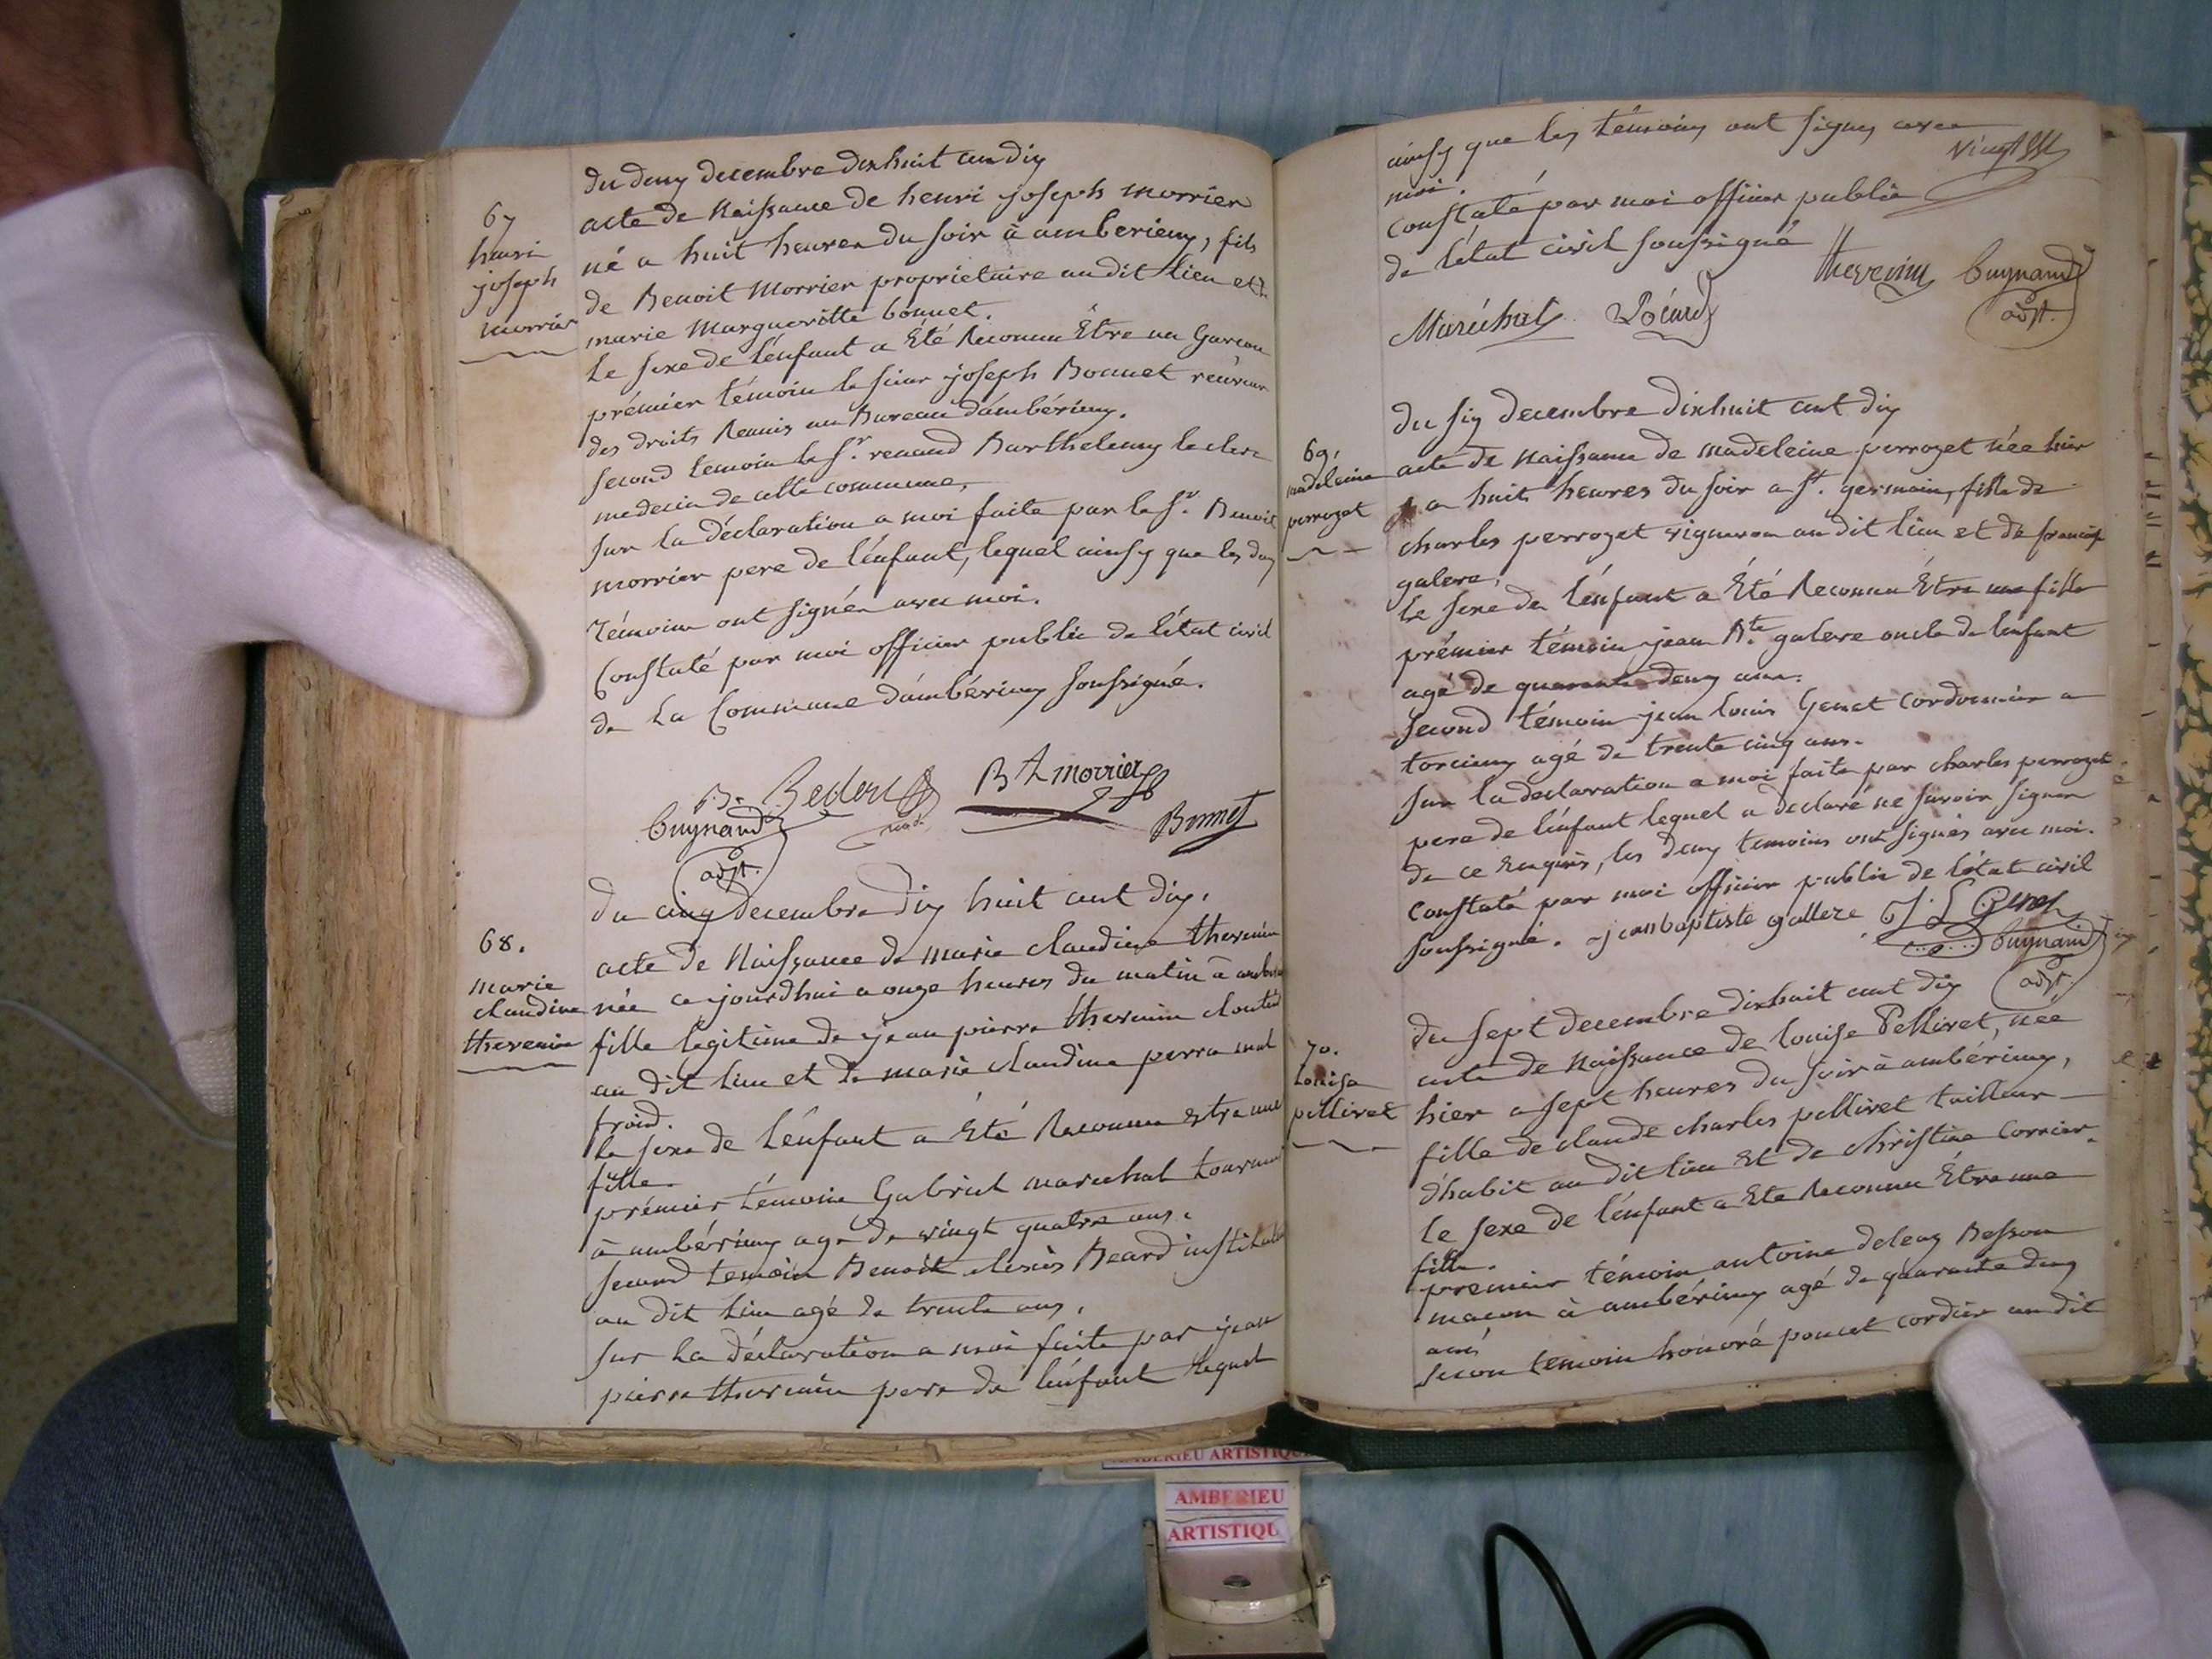 du deux decembre dixhuit cen dix
67
henri
joseph
morrier
acte de Naissance de henri joseph morrier
né a huit heures du soir à amberieux, fils
de Benoit Morrier proprietaire au dit lieu et de
marie Margueritte bonnet.
Le sexe de l'énfant a Été Reconnu Être un Garcon
prémier témoin le sieur joseph Bonnet
des droits Reunis au Bureau d'ambérieux.
second temoin le Sr. renaud Barthelemy leclerc
medecin de cette commune,
sur la déclaration a moi faite par le Sr. Benoit
morrier pere de l'énfant, lequel ainsy que les deux
témoins ont signés avec moi.
Constaté par moi officier public de l'état civil
de La Commune d'ambérieux soussigné.
B Morrier
Guynand
Bonnet
adjt.
du cinq decembre dix huit cent dix.
68.
marie
claudine
thevenin
acte de Naissance de marie claudine thevenin
née ce jourdhui a onze heures du matin à
fille legitime de jean pierre thevenin
au dit lieu et de marie claudine perra mal
froid.
le sexe de l'énfant a Été Reconnu estre une
fille.
prémier témoin Gabriel marechal
à ambérieux agé de vingt quatre ans.
second temoin Benoit Beard
au dit lieu agé de trente ans.
sur La déclaration a moi faite par jean
pierre thevenin pere de l'énfant lequel
ainsy que les témoins ont signes avec
moi.
constaté par moi officier public
de l'état civil soussigné
Thevenin Guynand
Maréchal Béard
adjt.
du six decembre dixhuit cent dix
69.
madeleine
perrozet
acte de naissance de madeleine perrozet née hier
a huit heures du soir a St. germain, fille de
charles perrozet vigneron au dit lieu et de
galere.
le sexe de l'énfant a Été Reconnu Être une fille
prémier témoin jean Bte. galere oncle de lenfant
agé de quarante deux ans.
second témoin jean louis Genet cordonnier a
torcieux agé de trente cinq ans.
sur la declaration a moi faite par charles perrozet
pere de l'énfant lequel a declaré ne savoir signer
de ce Enquis, les deux temoins ont signés avec moi.
constaté par moi officier public de l'état civil
soussigné. jean baptiste gallere J L Genet
Guynand
adjt.
du sept decembre dixhuit cent dix
70.
Louise
pellivet
acte de naissance de louise Pellivet, née
hier a sept heures du soir à ambérieux,
fille de claude charles pellivet tailleur
d'habit au dit lieu Et de christine Corrier.
le sexe de l'énfant a Ete Reconnu Être une
fille.
premier témoin antoine Besson
macon à ambérieux agé de quarante deux
ans
secon temoin honoré poncet cordier au dit
AMBERIEU ARTISTIQUE
AMBERIEU
ARTISTIQU